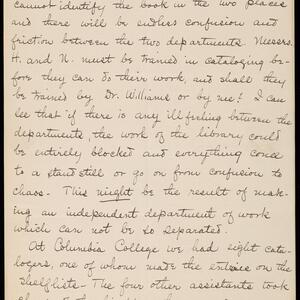 cannot identify the book in the two places
and there will be endless confusion and
friction between the two departments. Messrs.
H. and N. must be trained in cataloging be-
fore they can do their work, and shall they
be trained by Dr. Williams or by me? I can
see that if there is any ill feeling between the
departments, the work of the library could
be entirely blocked and everything come
to a stand still or go on from confusion to
chaos. This might be the result of mak-
ing an independent department of work
which can not be so separated.
At Columbia College we had eight cata-
logers, one of whom made the entries on the
shelflists. The four other assistants took